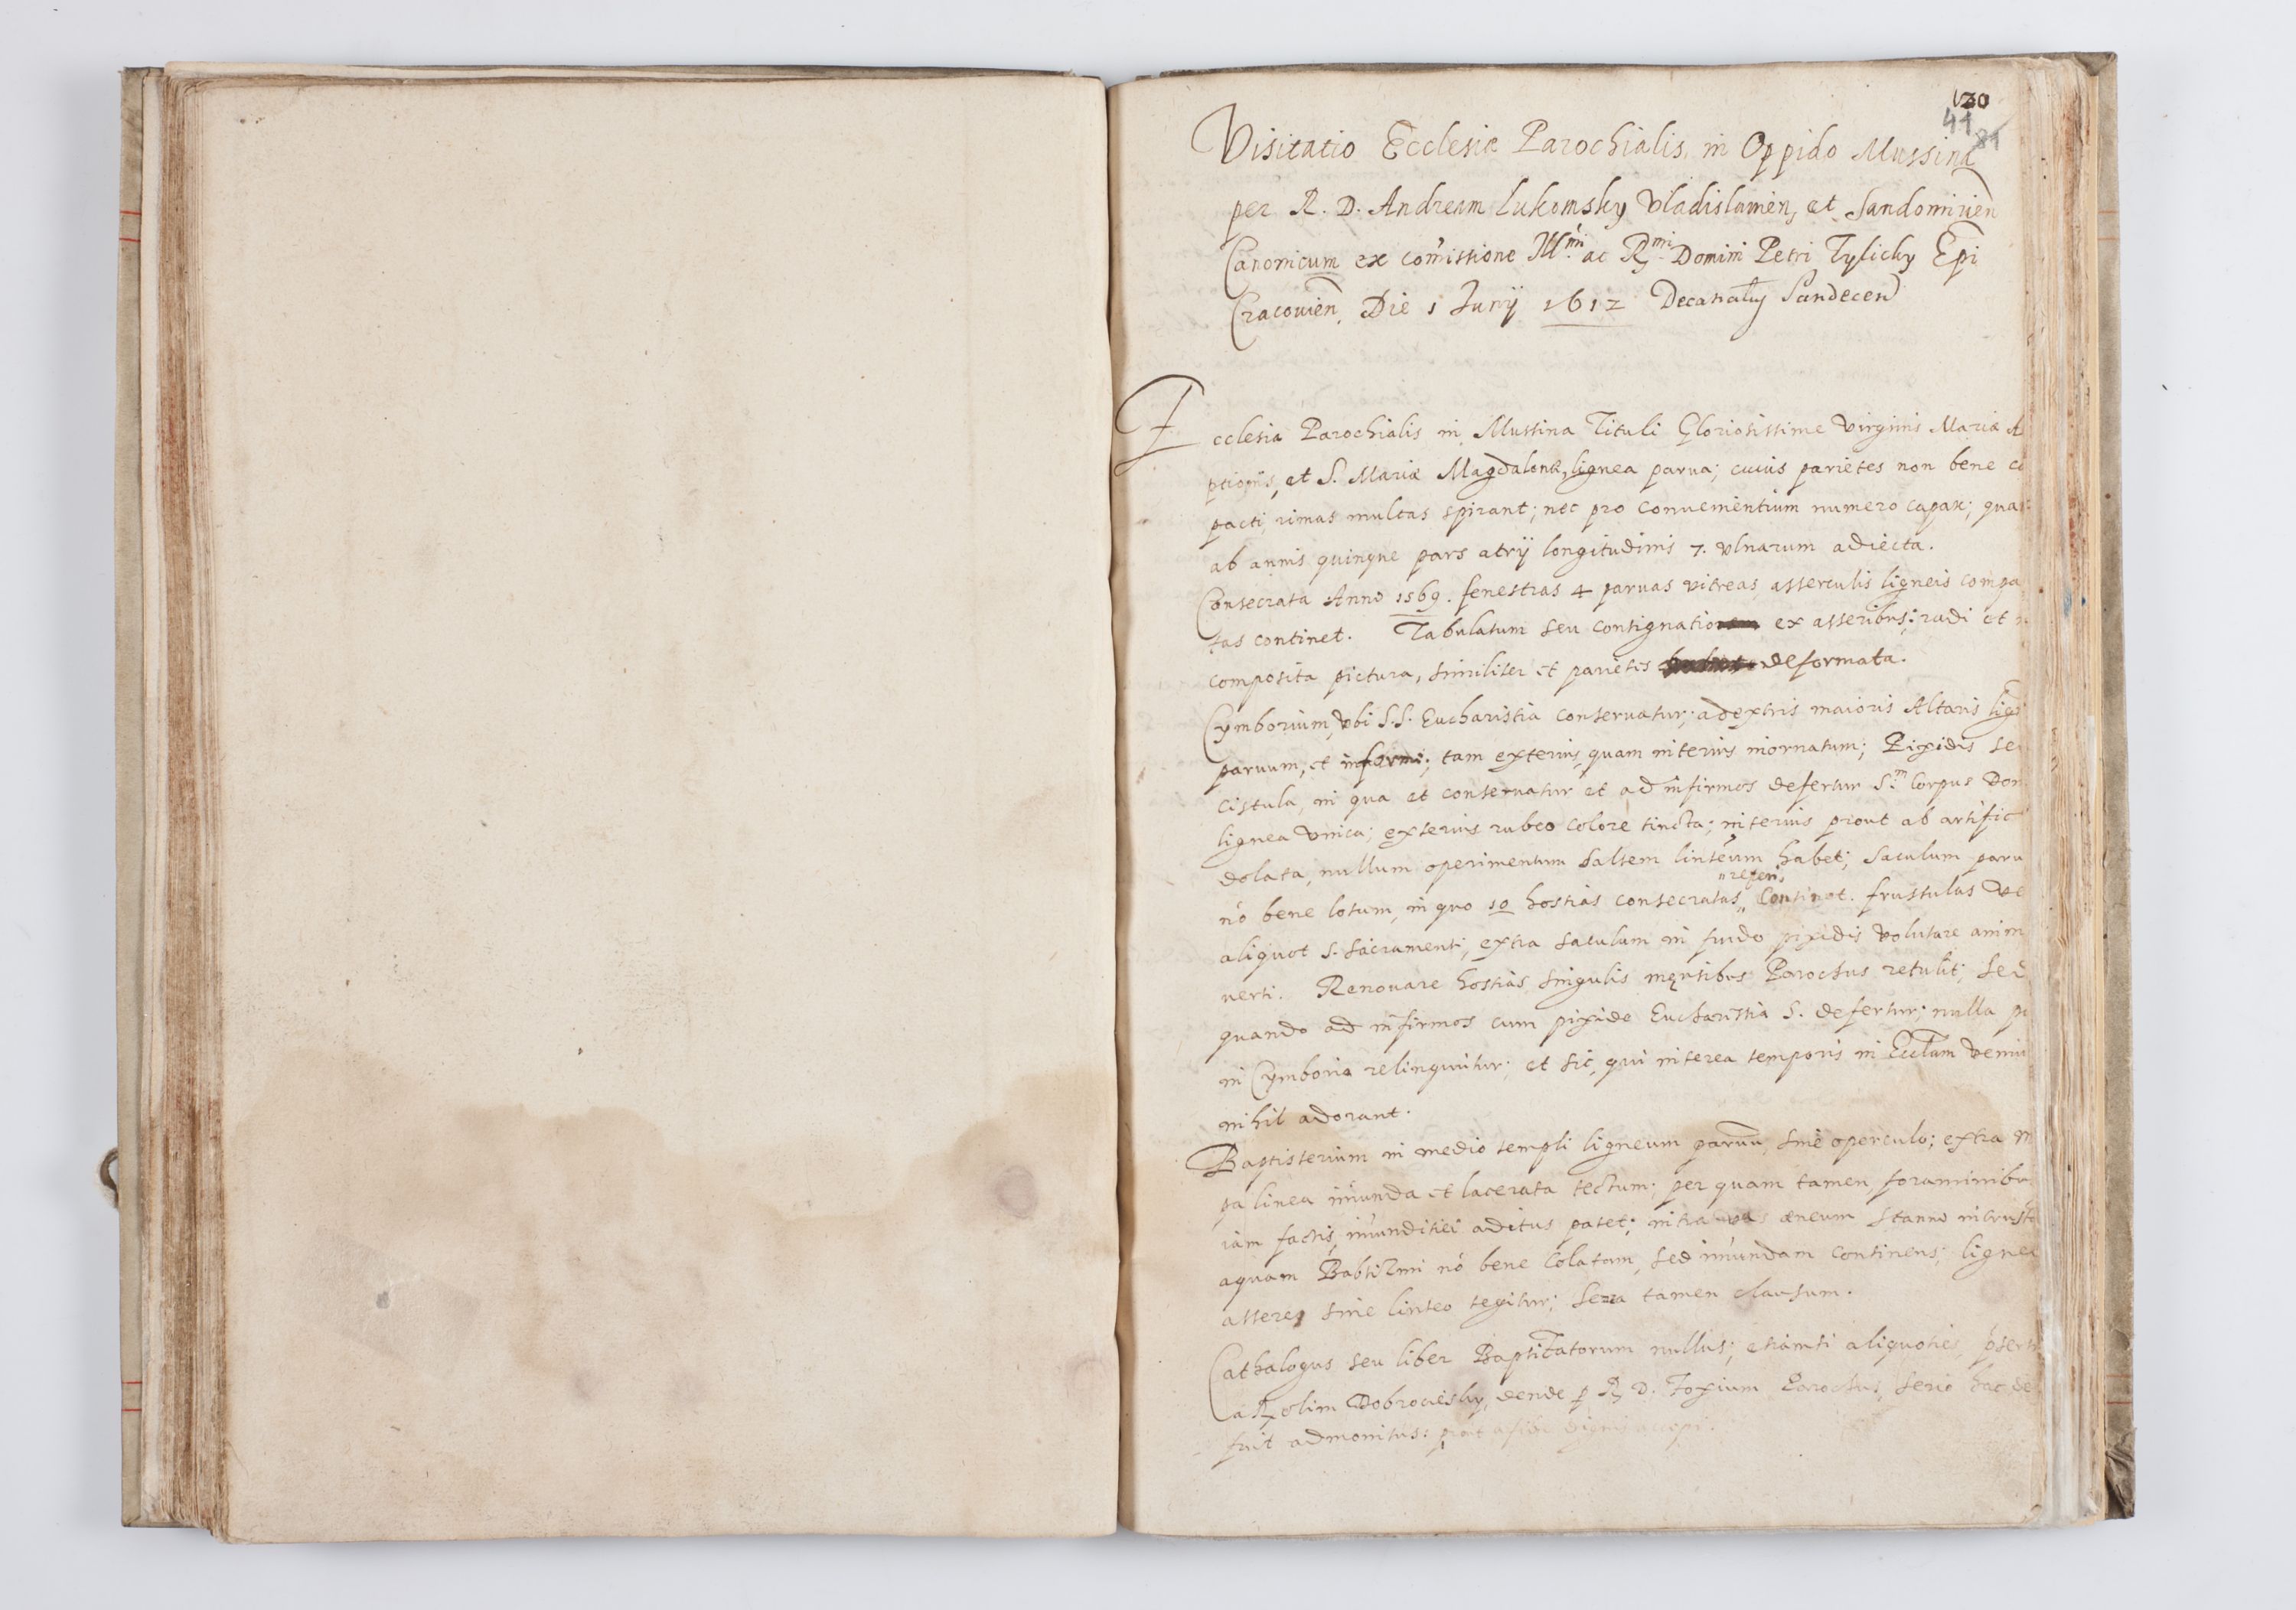 120
41
81
Visitatio Ecclesiæ Parochialis in Oppido Mussina
per R. D. Andream Lukomsky Vladislauien, et Sandomirien
Canonicum ex comissione Illmi ac Rmi Domini Petri Tylicky Epi
Cracouien, Die 1 Junij 1612 Decanatus Sandecen
Ecclesia Parochialis in Mussina Tituli Gloriosissime Virginis Mariæ As
ptionis, et S. Mariæ Magdalenæ, lignea parua; cuius parietes non bene co
pacti, rimas multas spirant; nec pro conuenientium numero capax; quam
ab annis quinque pars atrij longitudinis 7. vlnarum adiecta.
Consecrata Anno 1569. fenestras 4 paruas vitreas, asserculis ligneis compa
tas continet. Tabulatum seu contignatio ex asseribus; rudi et
composita pictura, similiter et parietes deformata.
Cymborium, vbi S.S. Eucharistia conseruatur; a dextris maioris Altaris lign
paruum, et informe; tam exterius, quam interius inornatum; Pixidis seu
cistula, in qua et conseruatur et ad infirmos defertur Sm Corpus Dom
lignea vnica; exterius rubeo colore tincta; interius prout ab artific
dolata, nullum operimentum saltem linteum habet; saculum paru
nō bene lotum, in quo 10 hostias consecratas reperi, Continet. frustulas ve
aliquot S. Sacramenti, extra saculum in fundo pixidis volutare anim
uerti. Renouare hostias singulis mensibus Parochus retulit; sed
quando ad infirmos cum pixide Eucharistia S. defertur; nulla p
in Cymborio relinquitur; et sic, qui interea temporis in Ecclam veniu
nihil adorant.
Baptisterium in medio templi ligneum paruū, sine operculo; extra m
pa linea imunda et lacerata tectum; per quam tamen foraminibus
iam factis, imunditiei aditus patet; intra vas æneum stanno incrusta
aquam Babtizmi nō bene Colatam, sed imundam continens; ligneo
assere, sine linteo tegitur; sera tamen clausum.
Cathalogus seu liber Baptizatorum nullus; etiamsi aliquoties, pserti
a R. olim Dobrociesky, deinde p R. D. Foxium Parochus, serio hac de
fuit admonitus: prout a fide dignis accepi.